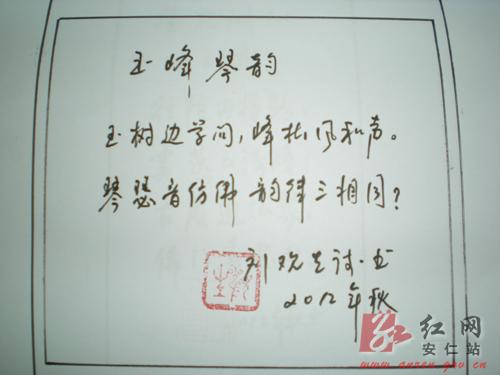 玉峰琴韵
玉树边学问,峰松风和声。
琴瑟音仿佛韵律三相同?
刘观生诗·书
2012年秋
红网
安仁站
www.anren.gov.cn